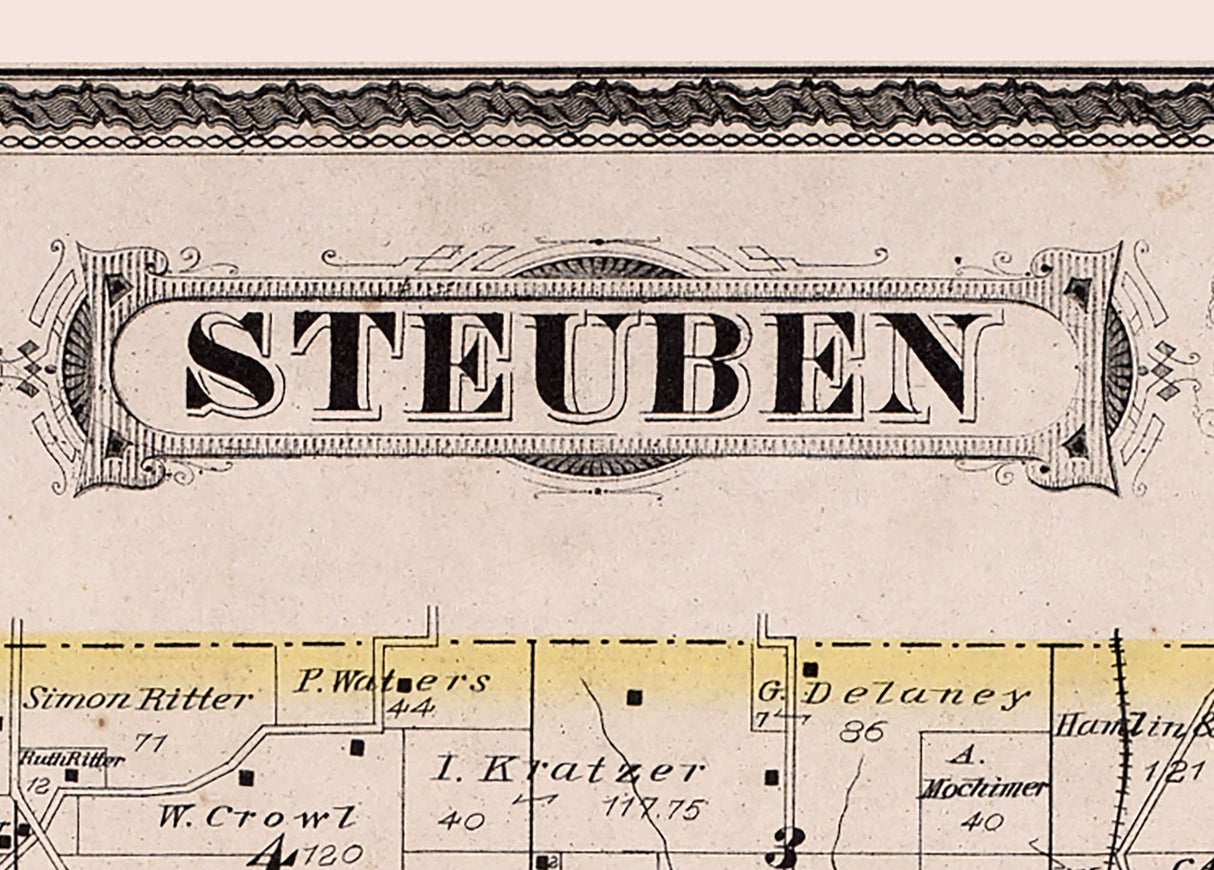 STEUBEN
P. Waters
44
Simon Ritter
71
G. Delaney
7
86
Hamlin &
121
Ruth Ritter
12
I. Kratzer
117.75
40
A.
Mochimer
40
W. Crowl
4
120
3